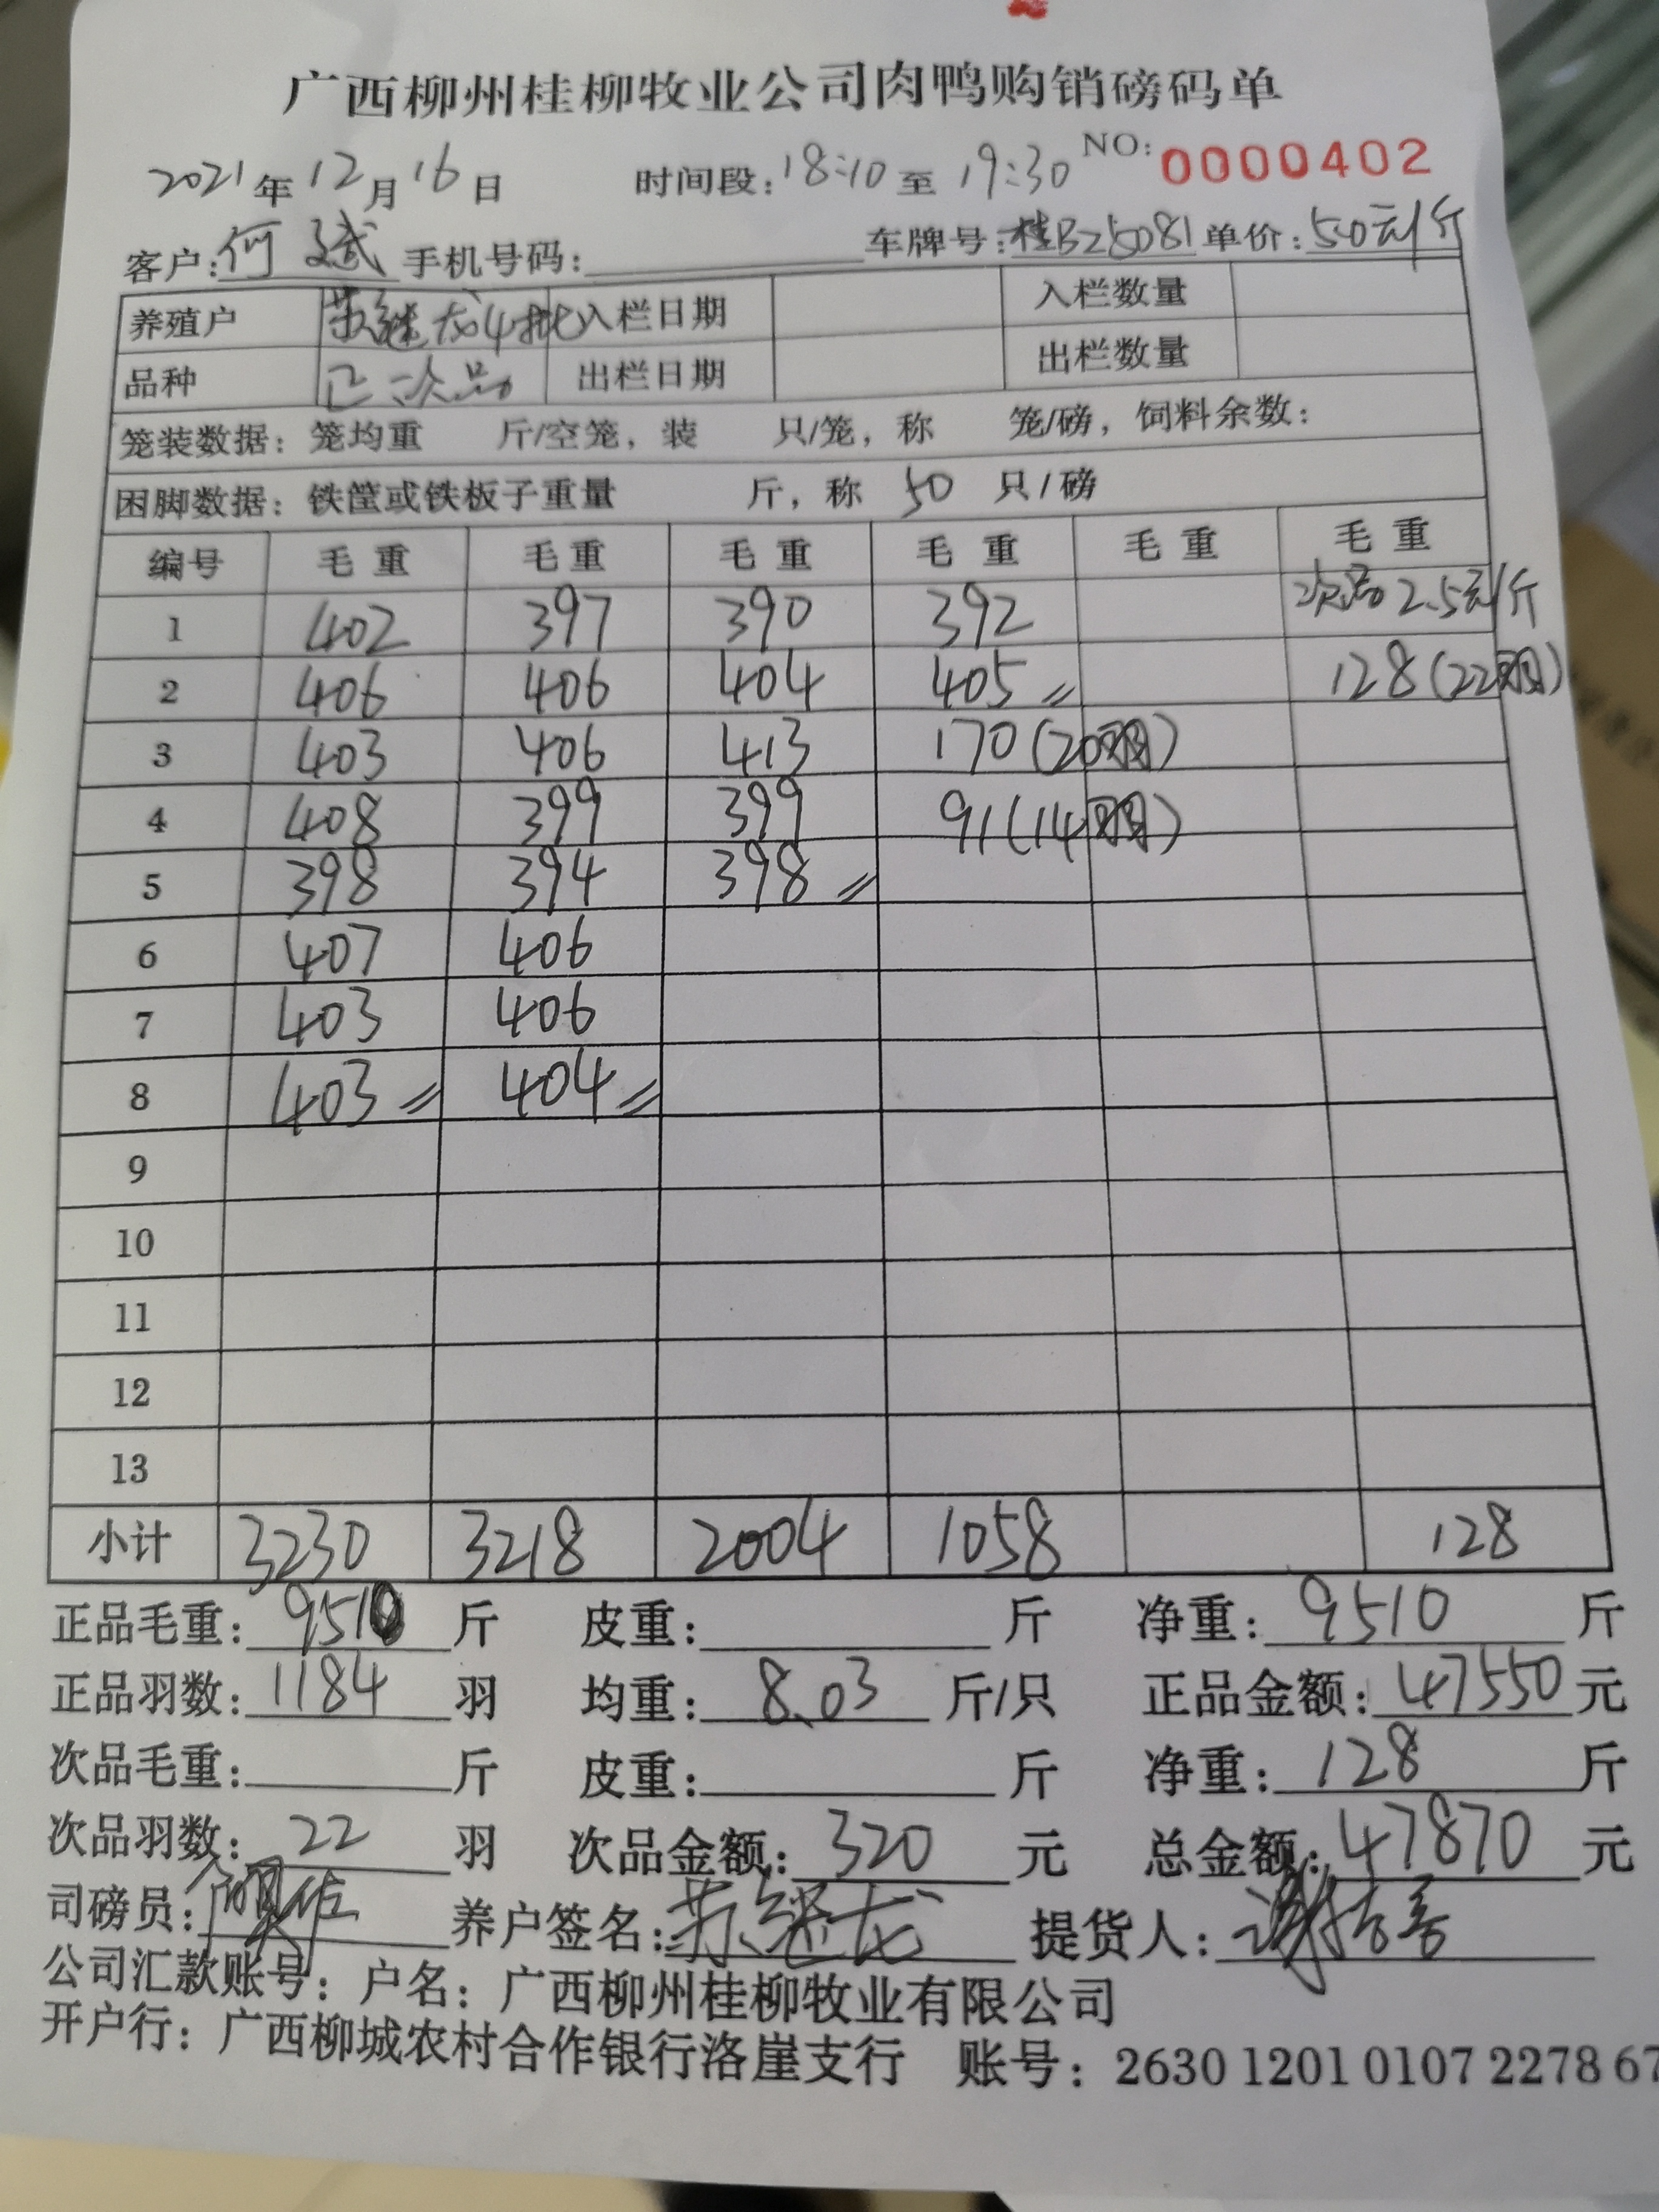 广西柳州桂柳牧业公司肉鸭购销磅码单
2021年12月16日 时间段:18:10至19:30 NO:0000402
客户:何斌 手机号码: 车牌号:桂B25081 单价:5.0元/斤
养殖户 苏继龙4批 入栏日期 入栏数量
品种 正次品 出栏日期 出栏数量
笼装数据：笼均重 斤/空笼，装 只/笼，称 笼/磅，饲料余数：
困脚数据：铁筐或铁板子重量 斤，称 50 只/磅
编号 毛重 毛重 毛重 毛重 毛重 毛重
1 402 397 390 392 次品2.5元/斤
2 406 406 404 405 128(22羽)
3 403 406 413 170(20羽)
4 408 399 399 91(14羽)
5 398 394 398
6 407 406
7 403 406
8 403 404
9
10
11
12
13
小计 3230 3218 2004 1058 128
正品毛重:9510斤 皮重: 斤 净重:9510斤
正品羽数:1184羽 均重:8.03斤/只 正品金额:47550元
次品毛重: 斤 皮重: 斤 净重:128斤
次品羽数:22羽 次品金额:320元 总金额:47870元
司磅员: 养户签名:苏继龙 提货人:
公司汇款账号：户名：广西柳州桂柳牧业有限公司
开户行：广西柳城农村合作银行洛崖支行 账号：2630 1201 0107 2278 67